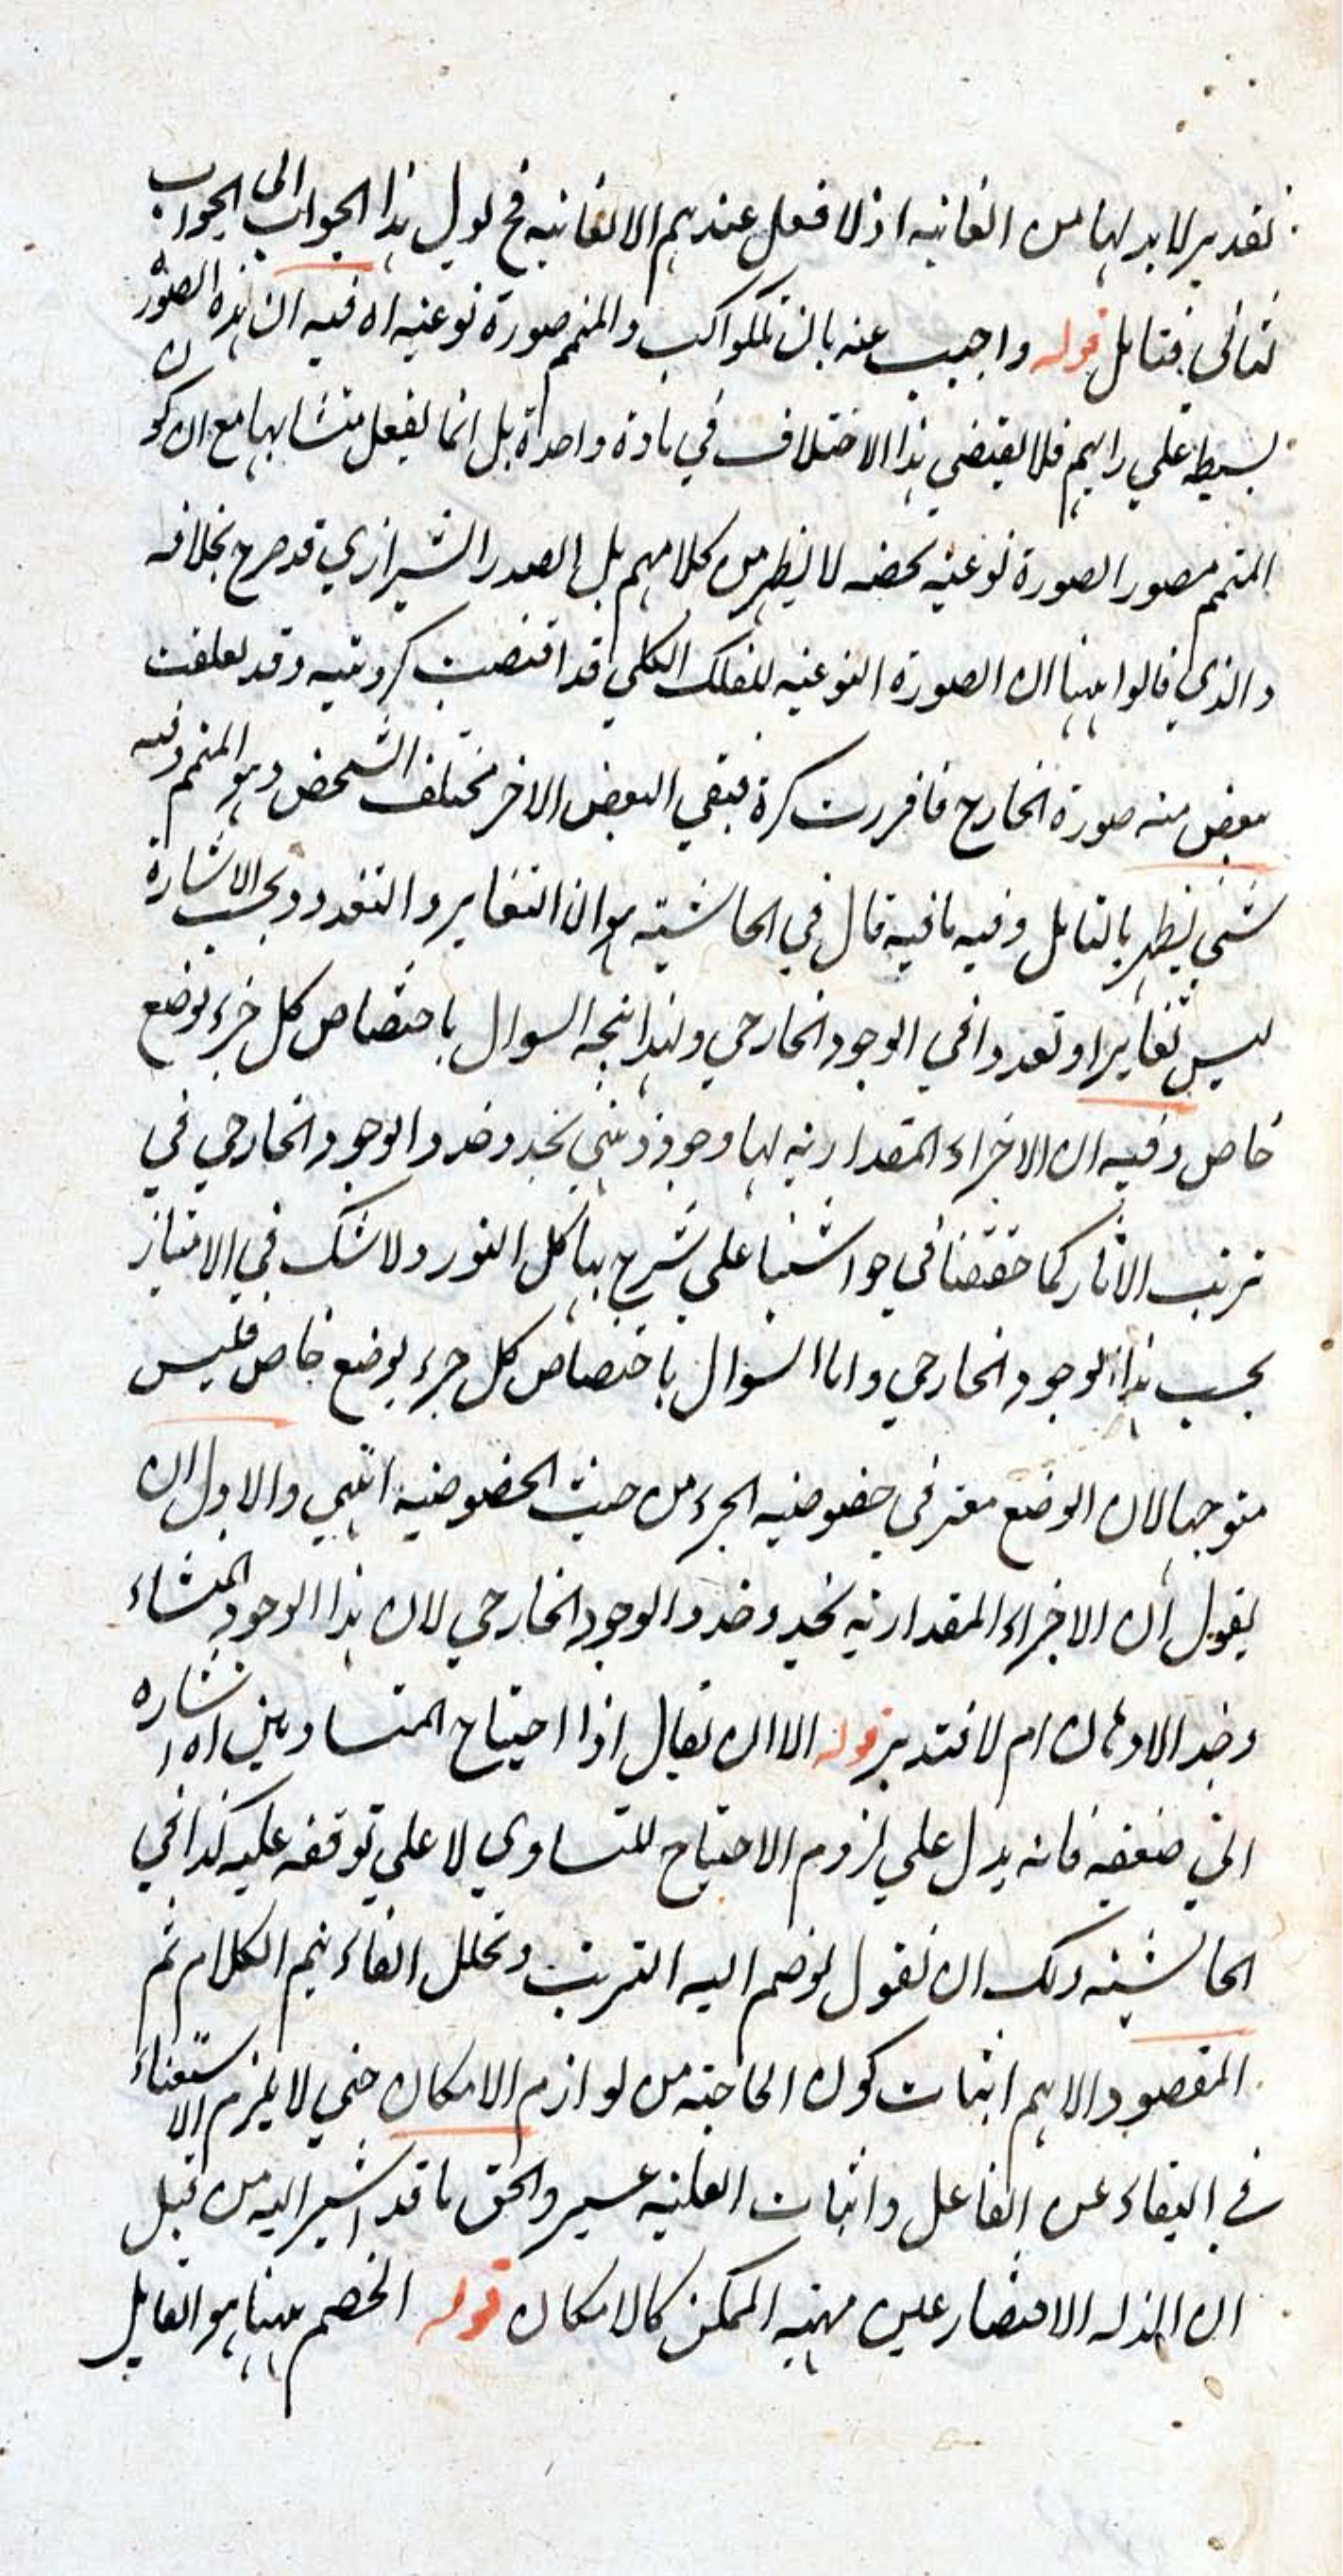 تقدير لا بد لها من الغائية اذ لا فعل عندهم الا لغائية فح يؤل هذا الجواب الى الجواب
الثاني فتامل قوله واجيب عنه بان للكواكب والمتمم صورة نوعية اه فيه ان هذه الصور
بسيطة على رايهم فلا يقتضي هذا الاختلاف في مادة واحدة بل انما يفعل متشابها مع ان كون
المتمم مصور الصورة نوعية يخصه لا يظهر من كلامهم بل الصدر الشيرازي قد صرح بخلافه
والذي قالوا ههنا ان الصورة النوعية للفلك الكلي قد اقتضت كرويته وقد تعلقت
ببعض منه صورة الخارج فافرزت كرة فبقي البعض الاخر مختلف الشخن وهو المتمم وفيه
شئ يظهر بالتامل وفيه ما فيه قال في الحاشية هو ان التغاير والتعدد بحسب الاشارة
ليس تغايرا وتعددا في الوجود الخارجي ولهذا اتجه السوال باختصاص كل جزء بوضع
خاص وفيه ان الاجزاء المقدارية لها وجود ذهني يحذو حذو الوجود الخارجي في
ترتب الاثار كما حققنا في حواشينا على شرح هياكل النور ولا شك في الامتياز
بحسب هذا الوجود الخارجي واما السوال باختصاص كل جزء بوضع خاص فليس
متوجها لان الوضع معتبر في خصوصية الجزء من حيث الخصوصية انتهى والاولى ان
يقول ان الاجزاء المقدارية يحذو حذو الوجود الخارجي لان هذا الوجود لمنشاء
وجد الاذهان ام لا فتدبر قوله الا ان يقال اذا احتياج المتساويين اه اشاره
الى ضعفه فانه يدل على لزوم الاحتياج للمتساوي لا على توقفه عليه كذا في
الحاشية ولك ان تقول لو ضم اليه الترتب وتخلل الفاء يتم الكلام ثم
المقصود الاهم اثبات كون الحاجة من لوازم الامكان حتى لا يلزم الاستغناء
في البقاء عن الفاعل واثبات العلية عسير والحق ما قد اشير اليه من قبل
ان الافتقار عين مهية الممكن كالامكان قوله الخصم ههنا هو القايل